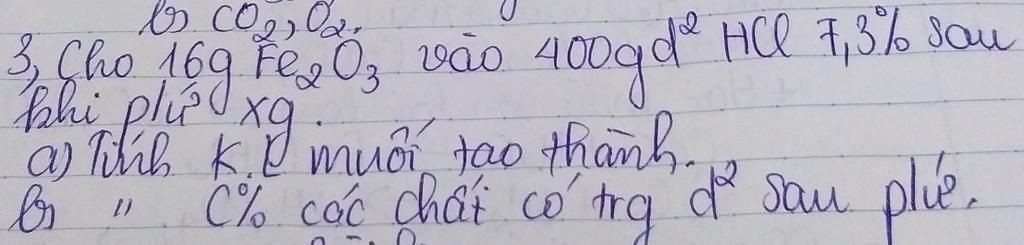 b) CO2, O2.
3, Cho 16g Fe2O3 vào 400g d² HCl 7,3% sau
khi plứ xg.
a) Tính K.L muối tạo thành.
b) " C% các chất có trg d² sau plứ.